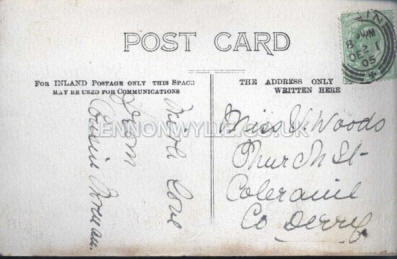 POST CARD
FOR INLAND POSTAGE ONLY THIS SPACE
MAY BE USED FOR COMMUNICATIONS
THE ADDRESS ONLY
WRITTEN HERE
With Love
from
Cousin
Miss Woods
Church St-
Coleraine
Co Derry
LENNONWYLIE.CO.UK
DE 21
05